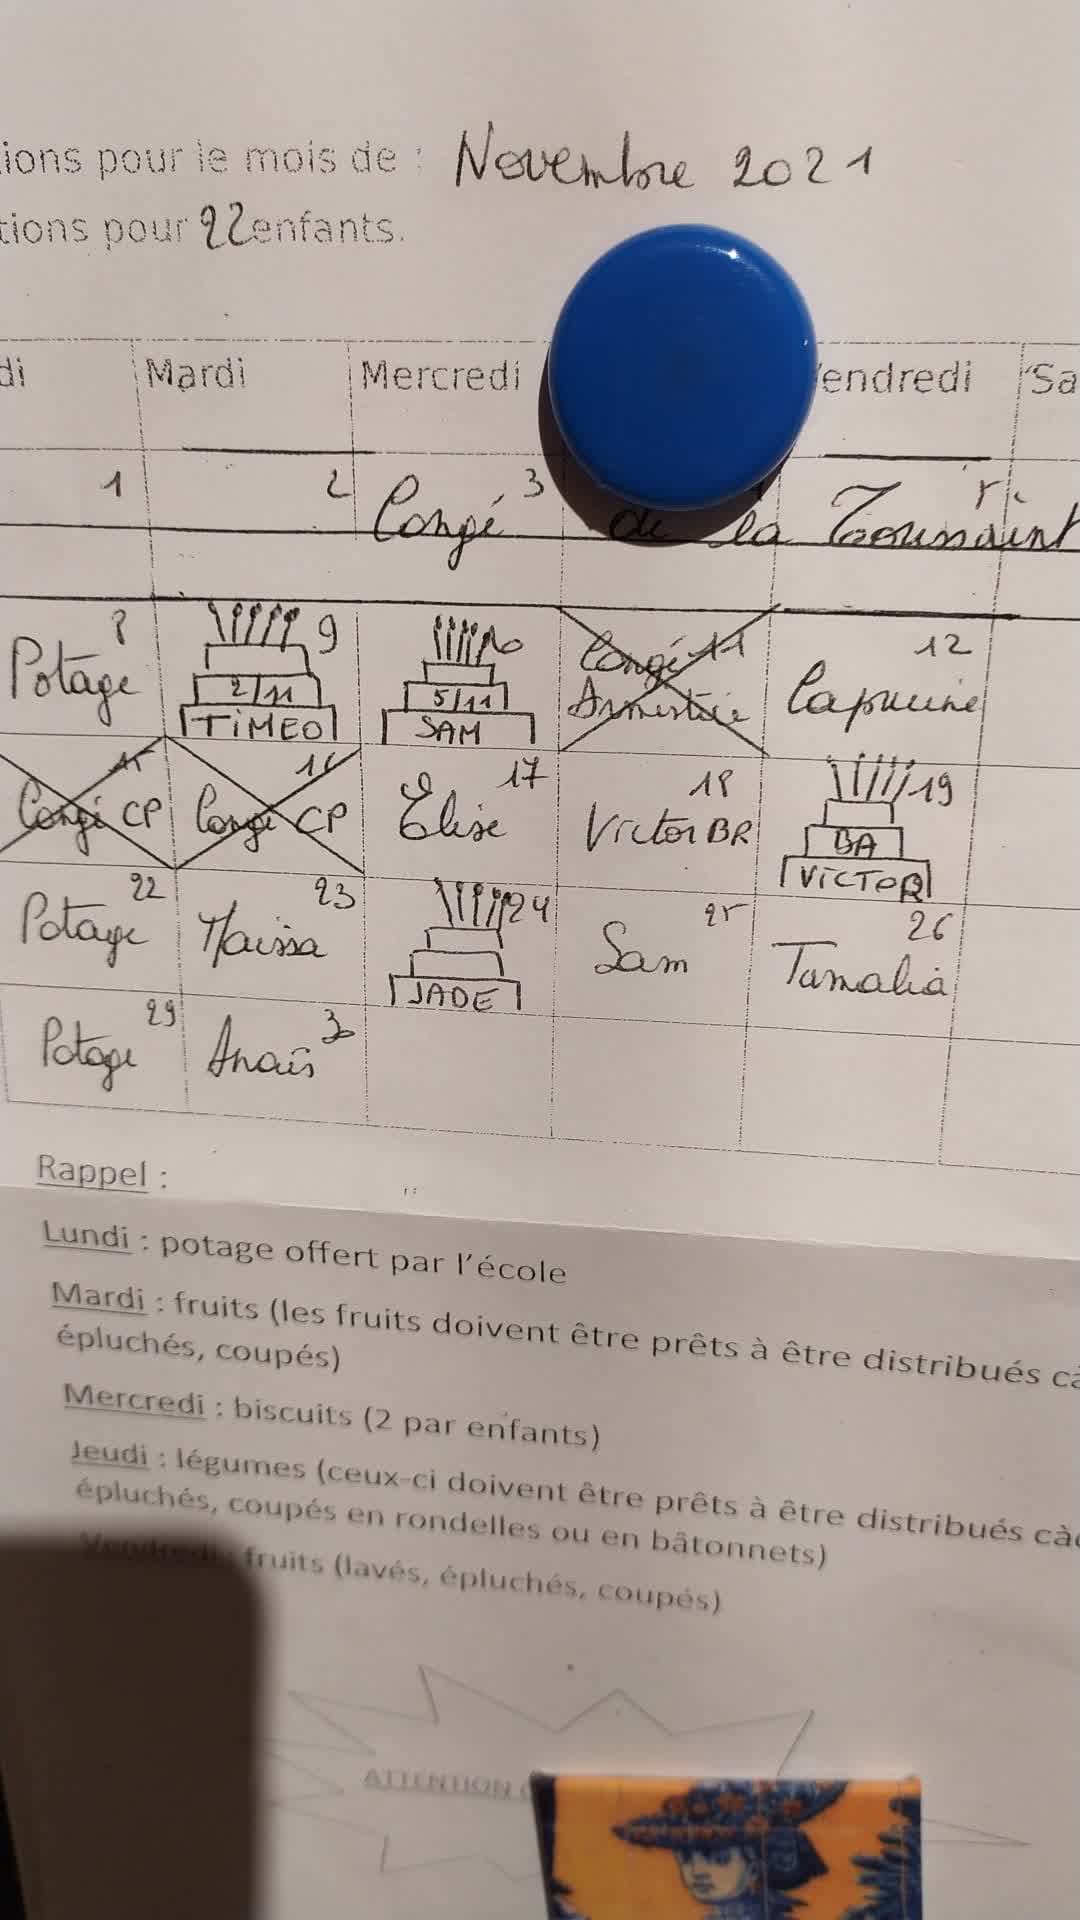 ions pour le mois de : Novembre 2021
tions pour 22 enfants.
di Mardi Mercredi endredi Sa
1 2 3
Congé de la Toussaint
8 9 10 11 12
Potage 2/11 TIMEO 5/11 SAM Congé Armistice Capucine
15 16 17 18 19
Congé CP Congé CP Elise Victor BR BA VICTOR
22 23 24 25 26
Potage Maissa JADE Sam Tamalia
29 30
Potage Anaïs
Rappel :
Lundi : potage offert par l'école
Mardi : fruits (les fruits doivent être prêts à être distribués cà
épluchés, coupés)
Mercredi : biscuits (2 par enfants)
Jeudi : légumes (ceux-ci doivent être prêts à être distribués càd
épluchés, coupés en rondelles ou en bâtonnets)
Vendredi : fruits (lavés, épluchés, coupés)
ATTENTION